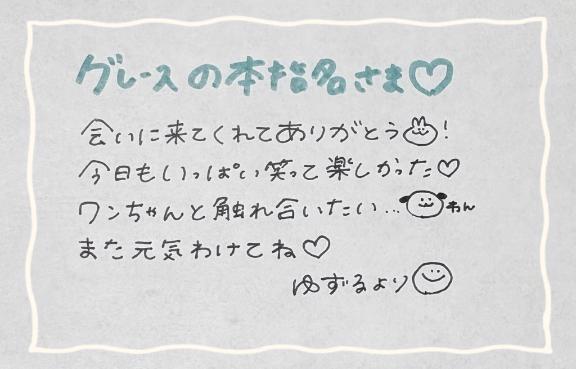 グレースの本指名さま♡
会いに来てくれてありがとう!
今日もいっぱい笑って楽しかった♡
ワンちゃんと触れ合いたい…わん
また元気わけてね♡
ゆずるより